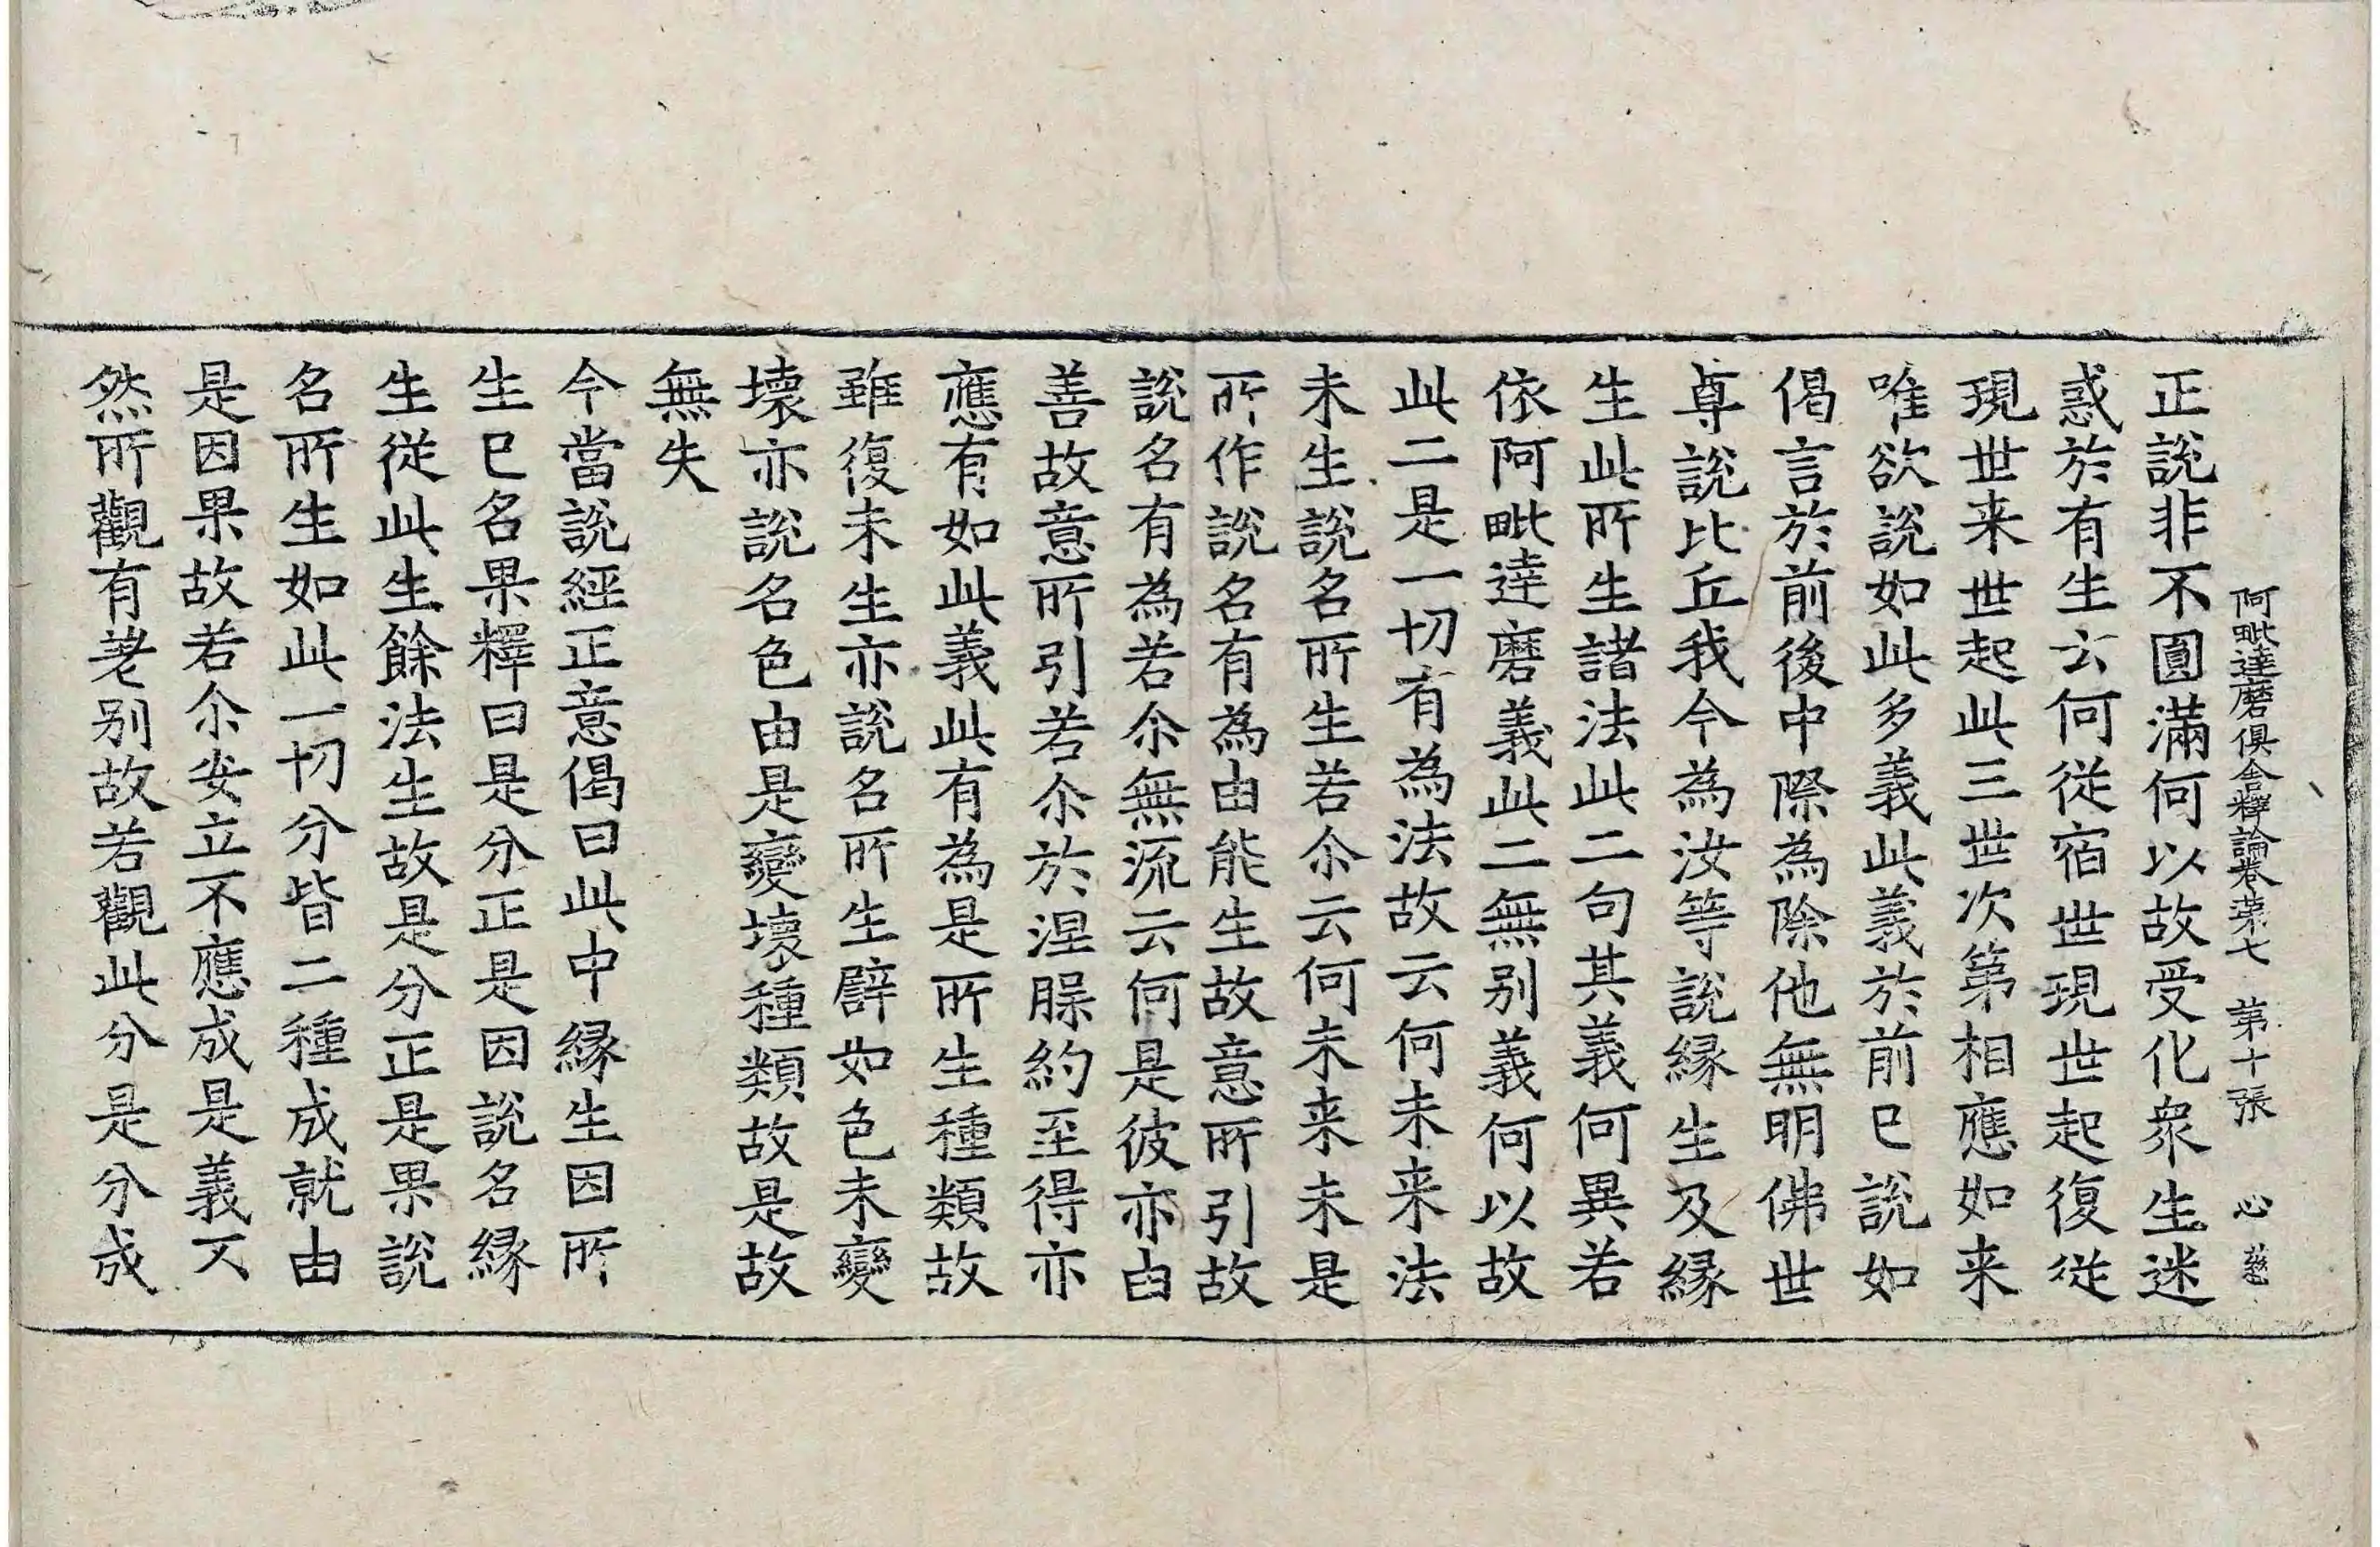 阿毗達磨俱舍釋論卷第七　第十張　心
正說非不圓滿何以故受化衆生迷
惑於有生云何從宿世現世起復從
現世来世起此三世次第相應如来
唯欲說如此多義此義於前已說如
偈言於前後中際為除他無明佛世
尊說比丘我今為汝等說縁生及縁
生此所生諸法此二句其義何異若
依阿毗達磨義此二無别義何以故
此二是一切有為法故云何未来法
未生說名所生若尒云何未来未是
所作說名有為由能生故意所引故
說名有為若尒無流云何是彼亦由
善故意所引若尒於涅槃約至得亦
應有如此義此有為是所生種類故
雖復未生亦說名所生譬如色未變
壞亦說名色由是變壞種類故是故
無失
今當說經正意偈曰此中縁生因所
生已名果釋曰是分正是因說名縁
生從此生餘法生故是分正是果說
名所生如此一切分皆二種成就由
是因果故若尒安立不應成是義不
然所觀有差别故若觀此分是分成